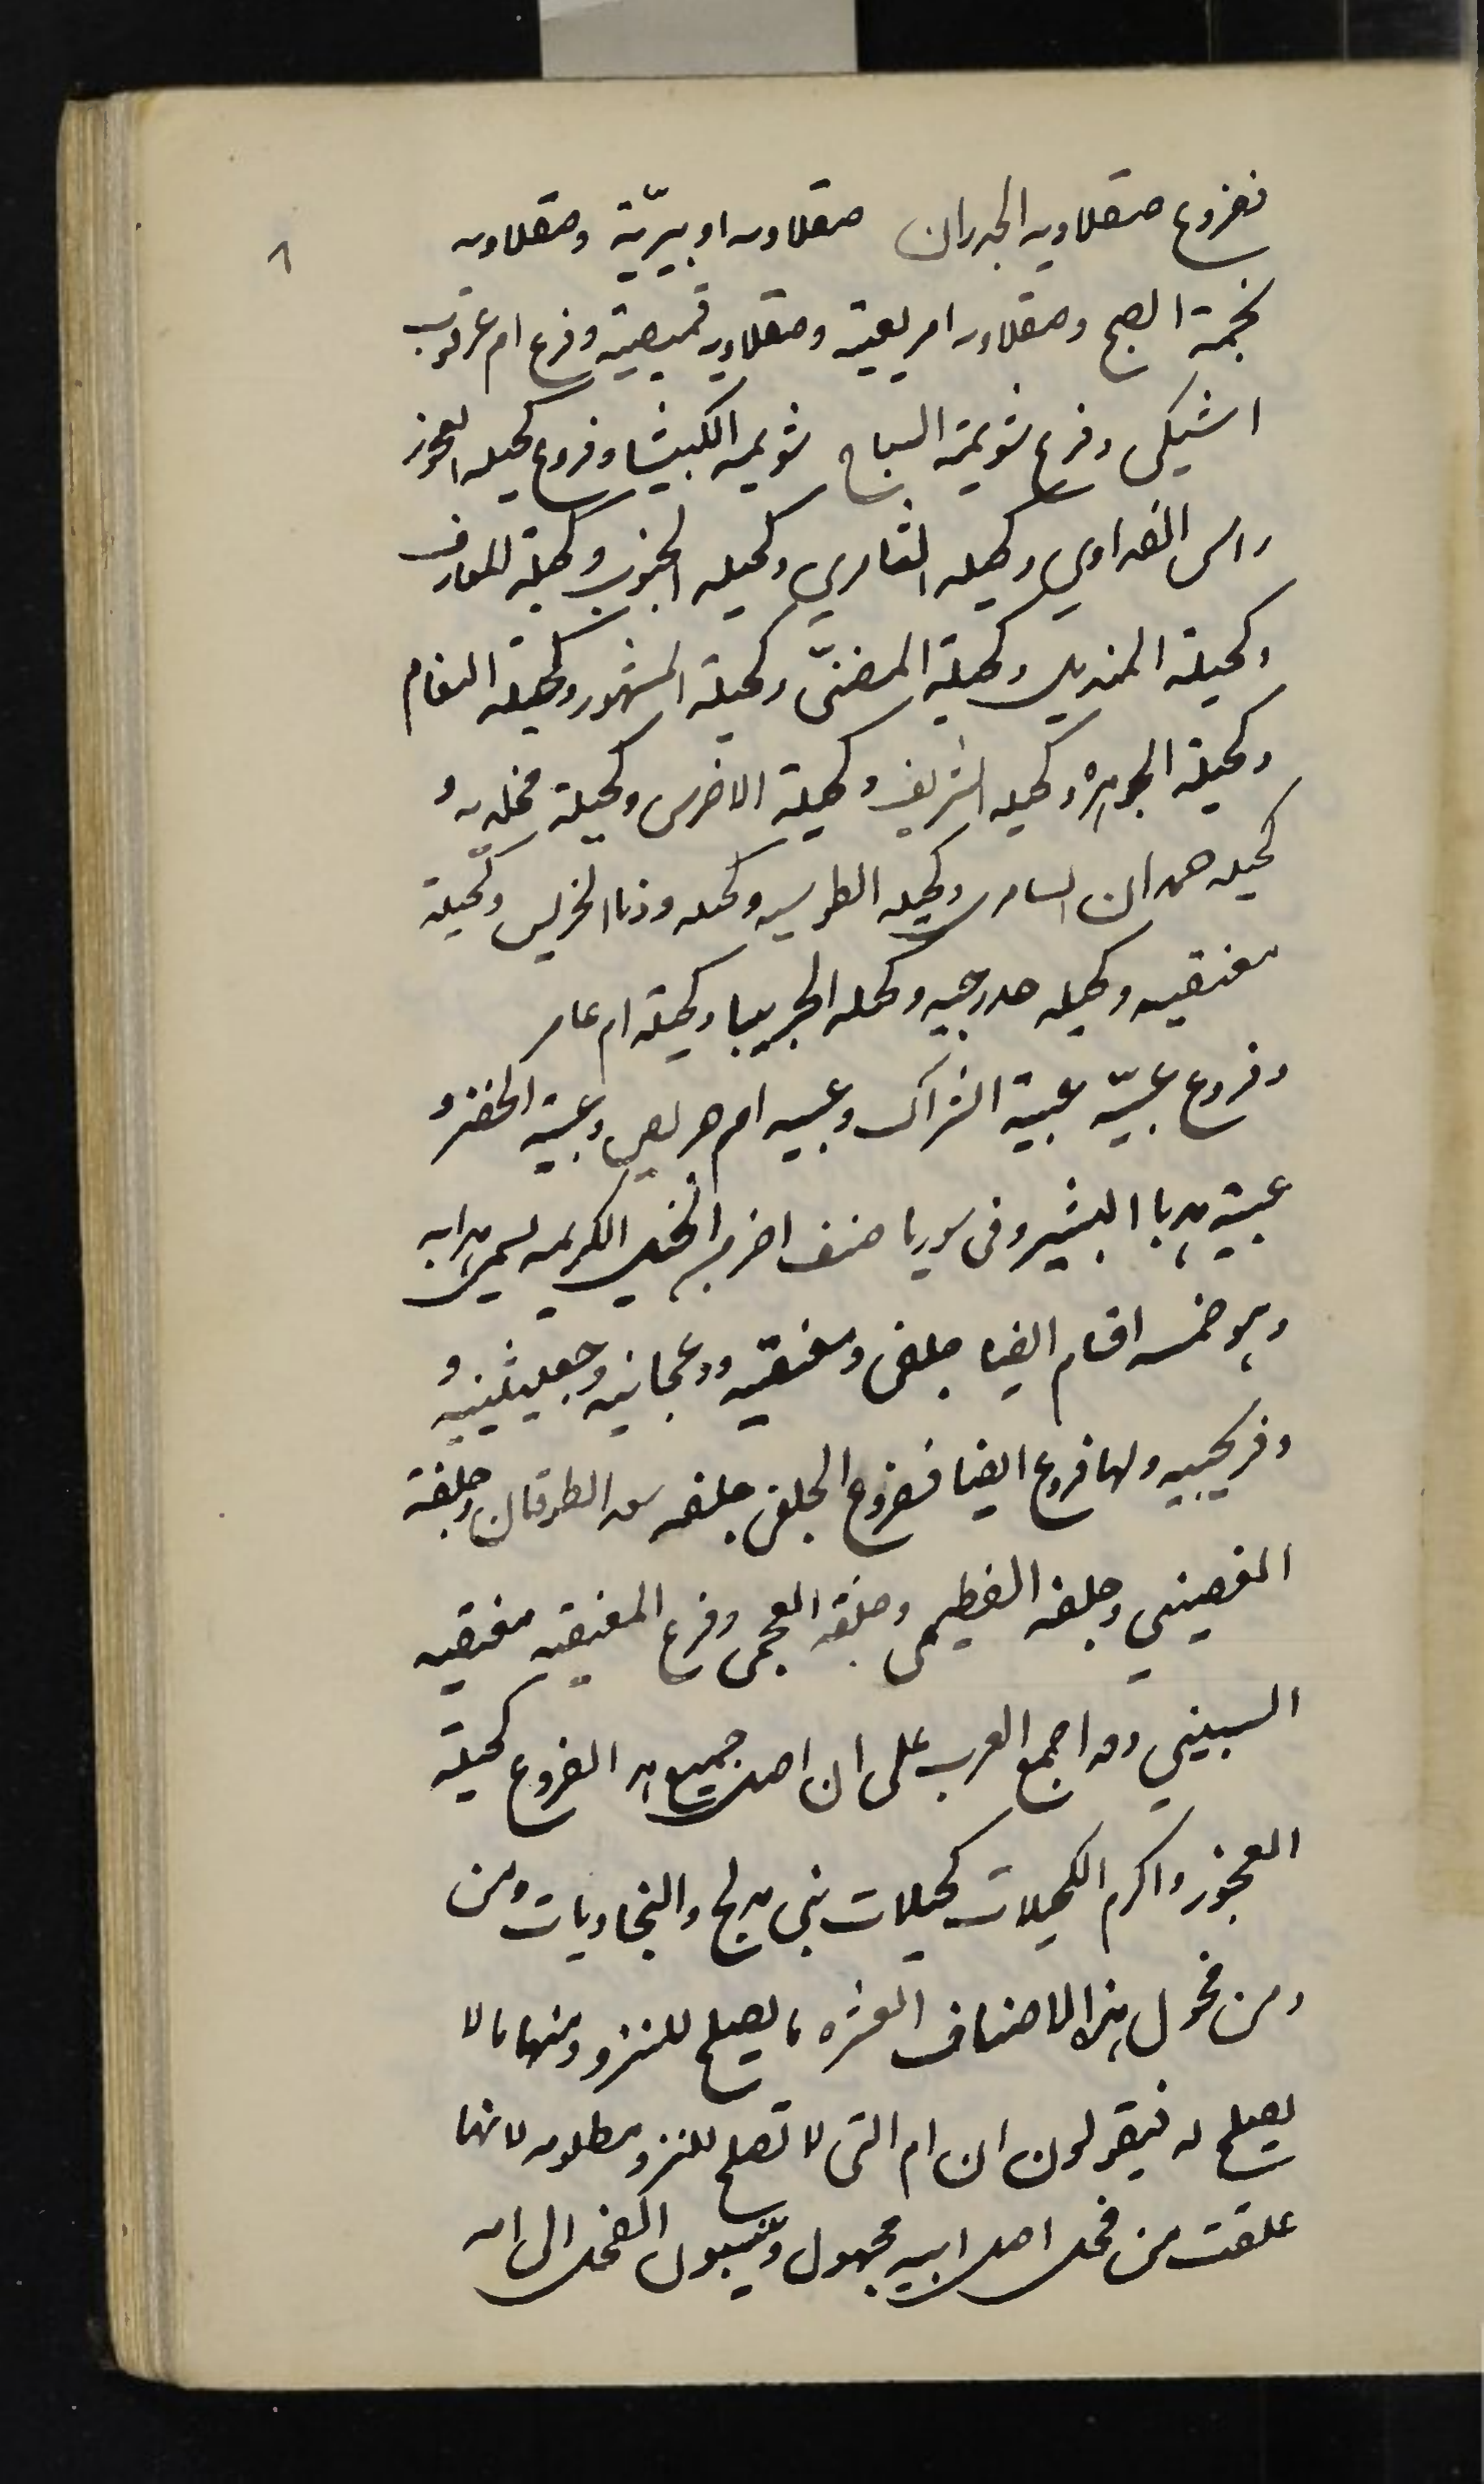 ٨
ففروع صقلاويه الجدران صقلاويه اوبيريّة وصقلاويه
نجمة الصبح وصقلاويه امريعية وصقلاويه قميصية وفرع ام عرقوب
اشيكى وفرع شويمة السباح شويمه الكبيشا وفروع كحيله العجوز
راس الفداوي وكحيله التامري وكحيله الجنوب وكحيلة المعارف
وكحيلة المنديل وكحيلة المضنّى وكحيلة المشهور وكحيله النغام
وكحيلة الجوهره وكحيله الشريف وكحيلة الاخرس وكحيلة مخلديه و
كحيله همدان السامري وكحيله الطوسيه وكحله وذنا الخريس وكحيلة
معنقيه وكحيله هدرجيه وكحله الجريبا وكحيلة ام عامر
وفروع عبيّه عبية الشراك وعبيه ام هريص وعبية الخضر و
عبية هدبا البشير وفى سوريا صنف اخر من الخيل الكريمه يسمى هدابه
وهو خمسه اقسام ايضا جلفى ومعنقيه ودعجانيه وجعيثنيه و
وفريجيه ولها فروع ايضا ففروع الجلفى جلفه سعد الطوقان وجلفة
الغصيني وجلفه الفطيمى وجلفة العجمى وفرع المعنقيه معنقيه
السبيني وقد اجمع العرب على ان اصل جميع هذه الفروع كحيلة
العجوز واكرم الكحيلات كحيلات بنى مدلج والنجاديات ومن
ومن فحول هذا الاصناف العشره ما يصلح للنزو ومنها ما لا
يصلح له فيقولون ان ام التى لا تصلح للنزو مظلومه لانها
علقت من فحل اصل ابيه مجهول وينسبون الفحل الى امه